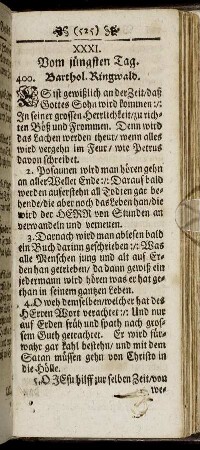 (525)
XXXI.
Vom jüngsten Tag.
400. Barthol. Ringwald.
ES ist gewißlich an der Zeit/ daß
Gottes Sohn wird kommen :/:
In seiner grossen Herrlichkeit/ zu rich-
ten Böß und Frommen. Denn wird
das Lachen werden theur/ wenn alles
wird vergehn im Feur/ wie Petrus
davon schreibet.
2. Posaunen wird man hören gehn
an aller Welter Ende :/: Darauf bald
werden auferstehn all Todten gar be-
hende/ die aber noch das Leben han/ die
wird der HERR von Stunden an
verwandeln und verneuen.
3. Darnach wird man ablesen bald
ein Buch darinn geschrieben :/: Was
alle Menschen jung und alt auf Er-
den han getrieben/ da dann gewiß ein
jedermann wird hören was er hat ge-
than in seinem gantzen Leben.
4. O weh demselben/ welcher hat des
HErren Wort verachtet :/: Und nur
auf Erden früh und spath nach gros-
sem Guth getrachtet. Er wird für-
wahr gar kahl bestehn/ und mit dem
Satan müssen gehn von Christo in
die Hölle.
5. O JEsu hilff zur selben Zeit/ von
we-